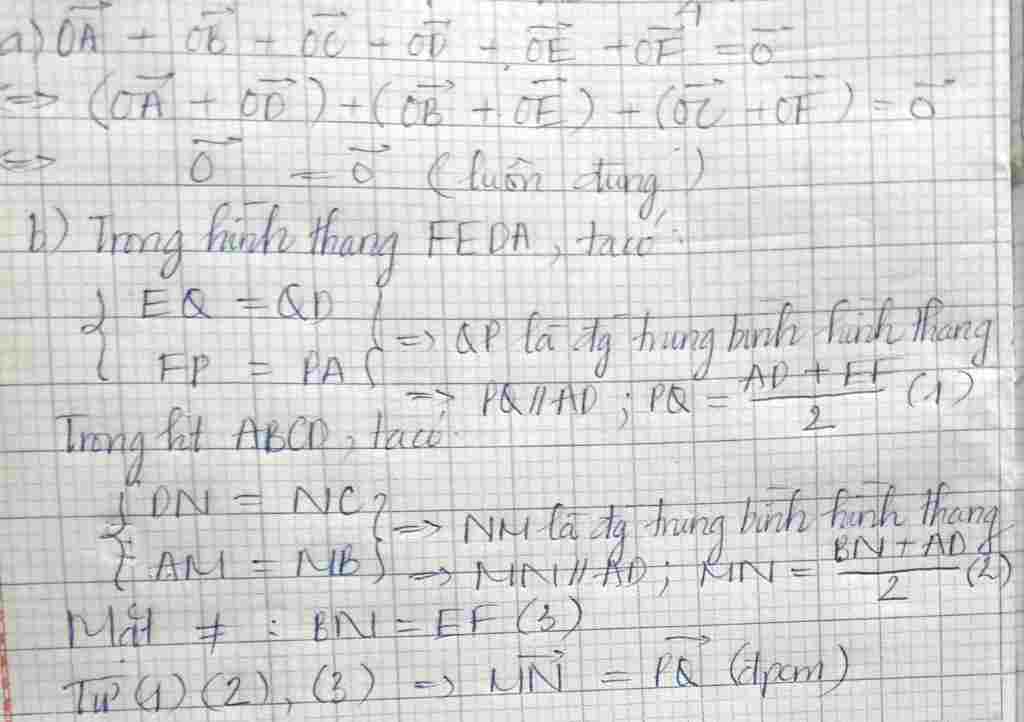 a) OA + OB + OC + OD + OE + OF = O
=> (OA + OD) + (OB + OE) + (OC + OF) = O
<=> O = O (luôn đúng)
b) Trong hình thang FEDA, ta có:
{ EQ = QD
FP = PA } => QP là đg trung bình hình thang
=> PQ // AD ; PQ = (AD + EF)/2 (1)
Trong ht ABCD, ta có:
{ DN = NC
AM = MB } => NM là đg trung bình hình thang
=> MN // AD ; MN = (BN + AD)/2 (2)
Mặt ≠ : BN = EF (3)
Từ (1) (2), (3) => MN = PQ (đpcm)